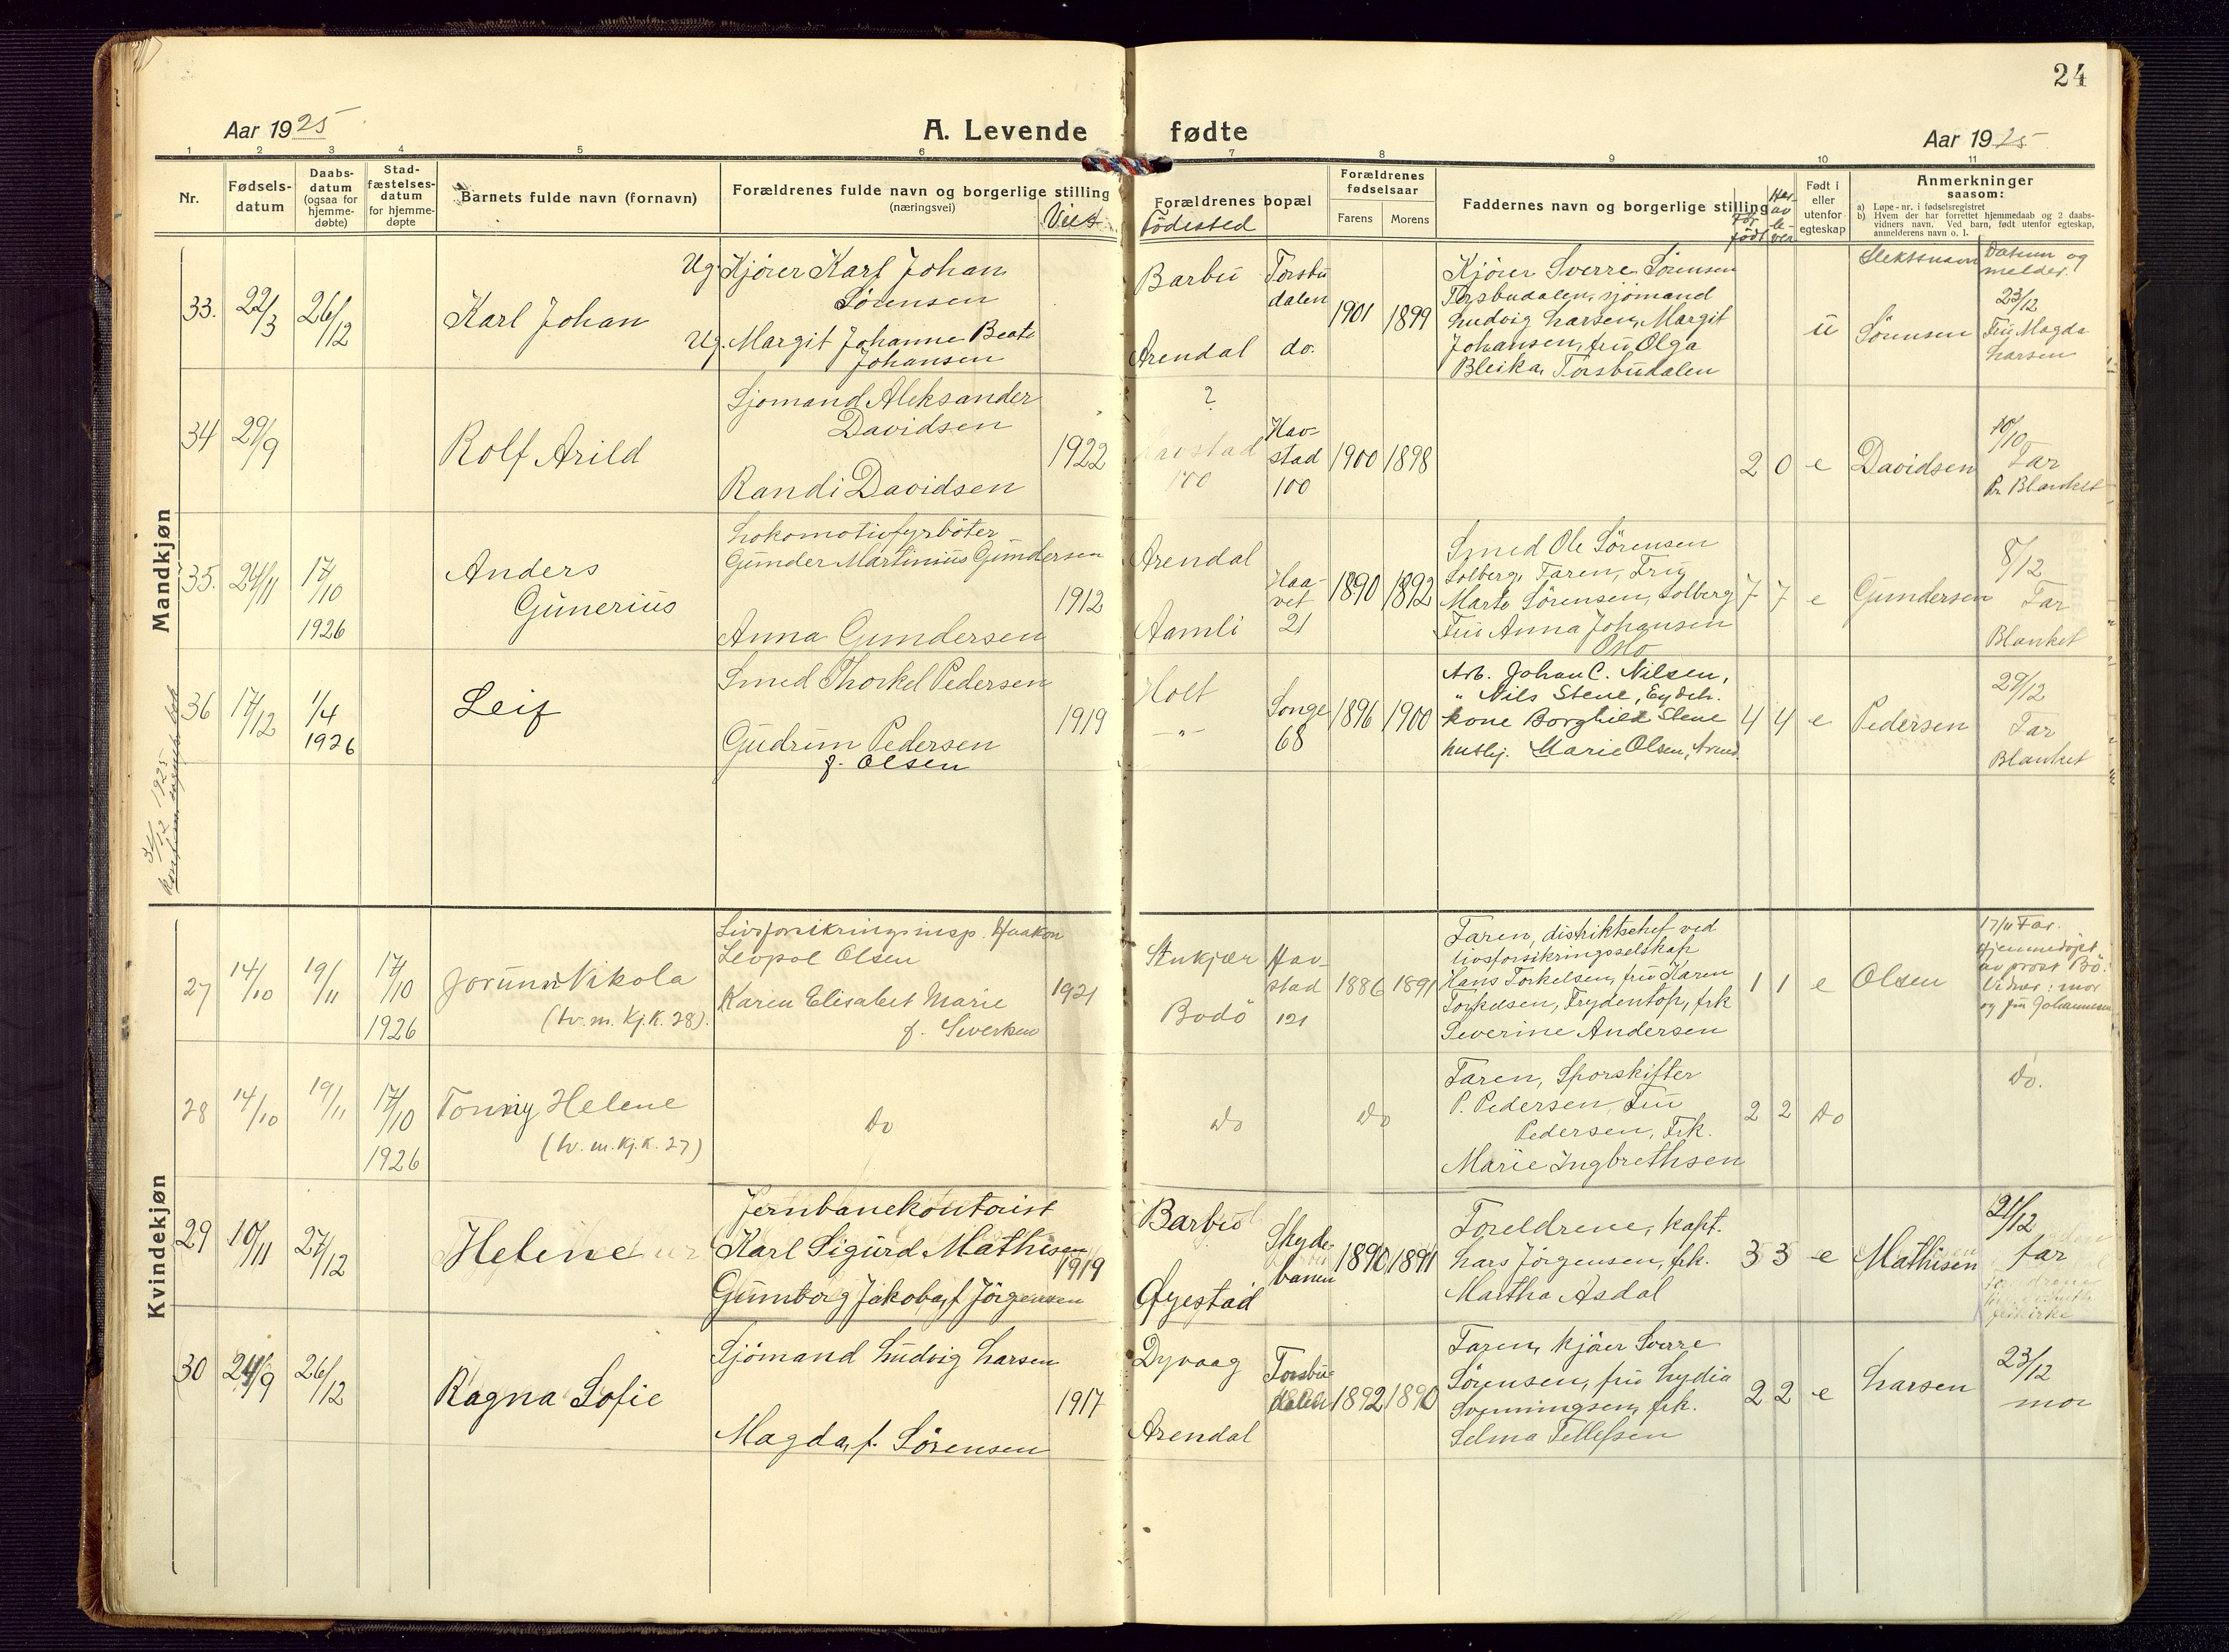 24
Aar 1925
A. Levende fødte
Aar 1925
1 2 3 4 5 6 7 8 9 10 11
Nr.
Fødsels-
datum
Daabs-
datum
(ogsaa for
hjemme-
døbte)
Stad-
fæstelses-
datum
for hjemme-
døpte
Barnets fulde navn (fornavn)
Forældrenes fulde navn og borgerlige stilling
(næringsvei)
Viet
Forældrenes bopæl
Födested
Forældrenes
fødselsaar
Farens
Morens
Faddernes navn og borgerlige stilling
Før
født
Hav
av
le-
ver
Født i
eller
utenfor
egteskap
Anmerkninger
saasom:
a) Løpe-nr. i fødselsregistret
b) Hvem der har forrettet hjemmedaab og 2 daabs-
vidners navn. Ved barn, født utenfor egteskap,
anmelderens navn o. l.
Slektsnavn
Datum og
melder.
Mandkjøn
33.
22/3
26/12
Karl Johan
Ug. Kjörer Karl Johan
Sörensen
Ug. Margit Johanne Beate
Johansen
Barbu
Arendal
Torsbu
dalen
do.
1901
1899
Kjörer Sverre Sörensen
Torsbudalen, sjömand
Ludvig Larsen, Margit
Johansen, fru Olga
Bleika, Torsbudalen
u
Sörensen
23/12
Fru Magda
Larsen
34
29/9
Rolf Arild
Sjömand Aleksander
Davidsen
Randi Davidsen
1922
?
Havstad
100
Hav-
stad
100
1900
1898
2
0
e
Davidsen
10/10
Far
Pr. Blanket
35.
24/11
17/10
1926
Anders
Gunerius
Lokomotivfyrböter
Gunder Martinius Gundersen
Anna Gundersen
1912
Arendal
Aamli
Haa-
vet
21
1890
1892
Smed Ole Sörensen
Solberg, Faren, Fru
Marte Sörensen, Solberg
Fru Anna Johansen
Oslo
7
7
e
Gundersen
8/12
Far
Blanket
36
17/12
1/4
1926
Leif
Smed Thorkel Pedersen
Gudrun Pedersen
f. Olsen
1919
Holt
— " —
Songe
68
1896
1900
Arb. Johan C. Nilsen,
" Nils Stene, Eydeh.
kone Borghild Stene
husbj. Marie Olsen, Arend.
4
4
e
Pedersen
29/12
Far
Blanket
31/12 1925
Kvindekjøn
27
14/10
19/11
17/10
1926
Jorunn Nikola
(tv. m. Kj. K. 28).
Livsforsikringsinsp. Haakon
Leopol Olsen
Karen Elisabet Marie
f. Siverksen
1921
Stenkjær
Bodö
Hav-
stad
121
1886
1891
Faren, distriktschef ved
livsforsikringsselskap
Hans Torkelsen, fru Karen
Torkelsen, Frydentop, frk
Severine Andersen
1
1
e
Olsen
17/11 Far.
Hjemmedöpt
av prost Bö.
Vidner: mor
og fru Johannesen
28
14/10
19/11
17/10
1926
Tonny Helene
(tv. m. Kj. K. 27)
Do
Do
Do
Faren, Sporskifter
P. Pedersen, Fru
Pedersen, Frk.
Marie Ingbrethsen
2
2
Do
Do.
29
10/11
27/12
Helene
Jernbanekontorist
Karl Sigurd Mathisen
Gunborg Jakoba, f. Jörgensen
1919
Barbu
Øyestad
Skyde-
banen
1890
1891
Foreldrene, kapt.
Lars Jörgensen, frk.
Martha Asdal
3
3
e
Mathisen
21/12
far
30
24/9
26/12
Ragna Sofie
Sjömand Ludvig Larsen
Magda, f. Sörensen
1917
Dyvaag
Arendal
Torsbu-
dalen
1892
1890
Faren, kjörer Sverre
Sörensen, fru Lydia
Svenningsen, frk.
Selma Tellefsen
2
2
e
Larsen
23/12
mor